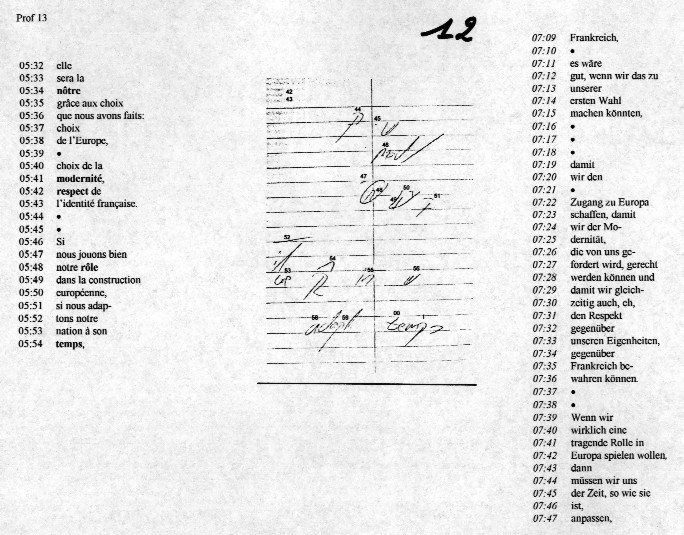 Prof 13
12
05:32 elle
05:33 sera la
05:34 nôtre
05:35 grâce aux choix
05:36 que nous avons faits:
05:37 choix
05:38 de l'Europe,
05:39 •
05:40 choix de la
05:41 modernité,
05:42 respect de
05:43 l'identité française.
05:44 •
05:45 •
05:46 Si
05:47 nous jouons bien
05:48 notre rôle
05:49 dans la construction
05:50 européenne,
05:51 si nous adap-
05:52 tons notre
05:53 nation à son
05:54 temps,
42
43
44
45
46
47
48
49
50
51
52
53
54
55
56
58 59 00
adapt temps
07:09 Frankreich,
07:10 •
07:11 es wäre
07:12 gut, wenn wir das zu
07:13 unserer
07:14 ersten Wahl
07:15 machen könnten,
07:16 •
07:17 •
07:18 •
07:19 damit
07:20 wir den
07:21 •
07:22 Zugang zu Europa
07:23 schaffen, damit
07:24 wir der Mo-
07:25 dernität,
07:26 die von uns ge-
07:27 fordert wird, gerecht
07:28 werden können und
07:29 damit wir gleich-
07:30 zeitig auch, eh,
07:31 den Respekt
07:32 gegenüber
07:33 unseren Eigenheiten,
07:34 gegenüber
07:35 Frankreich be-
07:36 wahren können.
07:37 •
07:38 •
07:39 Wenn wir
07:40 wirklich eine
07:41 tragende Rolle in
07:42 Europa spielen wollen,
07:43 dann
07:44 müssen wir uns
07:45 der Zeit, so wie sie
07:46 ist,
07:47 anpassen,